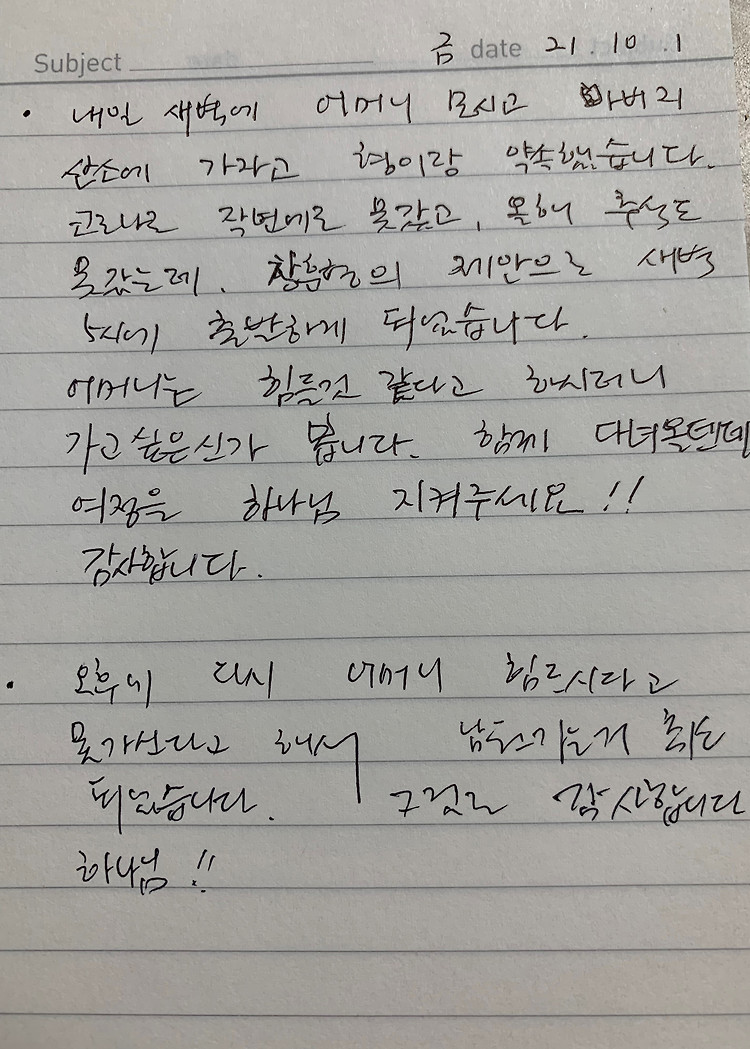 Subject 금 date 21. 10. 1
• 내일 새벽에 어머니 모시고 아버지
산소에 가자고 형이랑 약속했습니다.
코로나로 작년에도 못갔고, 올해 추석도
못갔는데. 의 제안으로 새벽
5시에 출발하게 되었습니다.
어머니는 힘들것 같다고 하시더니
가고싶은신가 봅니다. 함께 다녀올텐데
여정을 하나님 지켜주세요!!
감사합니다.
• 오후에 다시 어머니 힘드시다고
못가신다고 해서 가는게 취소
되었습니다. 그것도 감사합니다
하나님!!